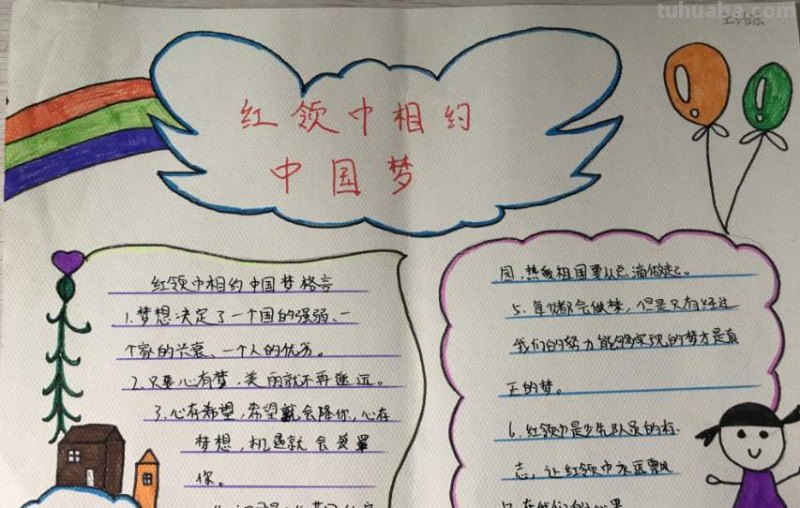 tuhuaba.com
红领巾相约
中国梦
红领巾相约中国梦格言
1.梦想决定了一个国的强弱、一
个家的兴衰、一个人的优劣。
2.只要心有梦，美丽就不再遥远。
3.心存希望，希望就会降你，心存
梦想，机遇就会笼罩
你。
园，热我祖国要从点滴做起。
5.每人都会做梦，但是只有经过
我们的努力能够实现的梦才是真
正的梦。
6.红领巾是少先队员的标
志，让红领巾永远飘